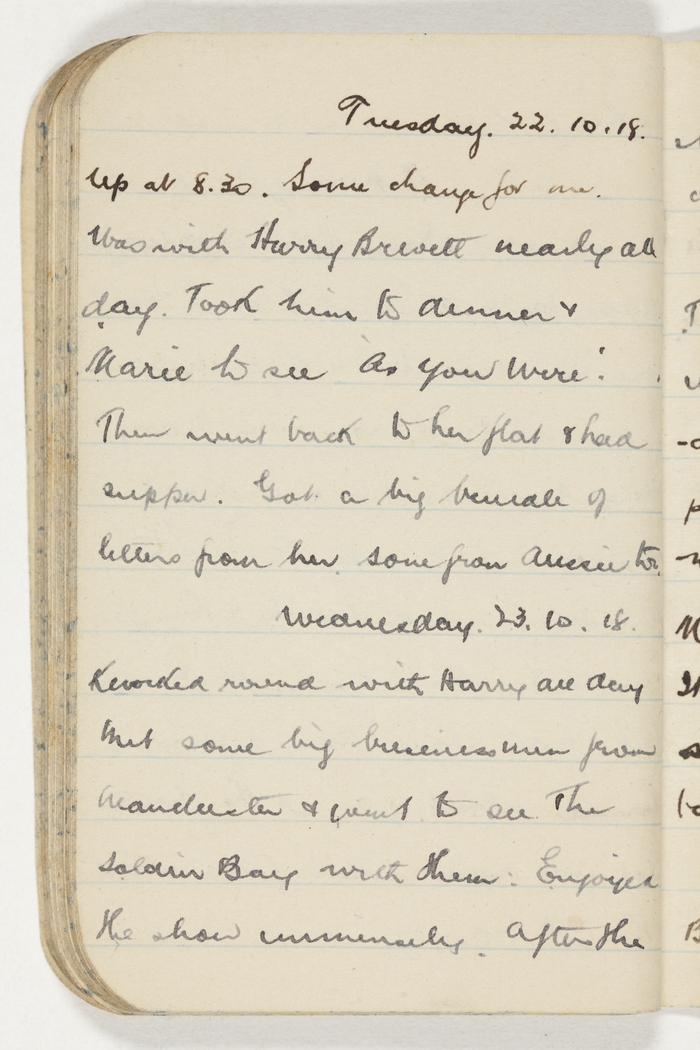 Tuesday. 22. 10. 18.
Up at 8.30. Some change for me.
Was with Harry Brewett nearly all
day. Took him to dinner &
Marie to see 'As You Were'.
Then went back to her flat & had
supper. Got a big bundle of
letters from her, some from Aussie too.
Wednesday. 23. 10. 18.
Knocked round with Harry all day
Met some big businessmen from
Manchester & went to see The
Soldier Boy with them. Enjoyed
the show immensely. After the